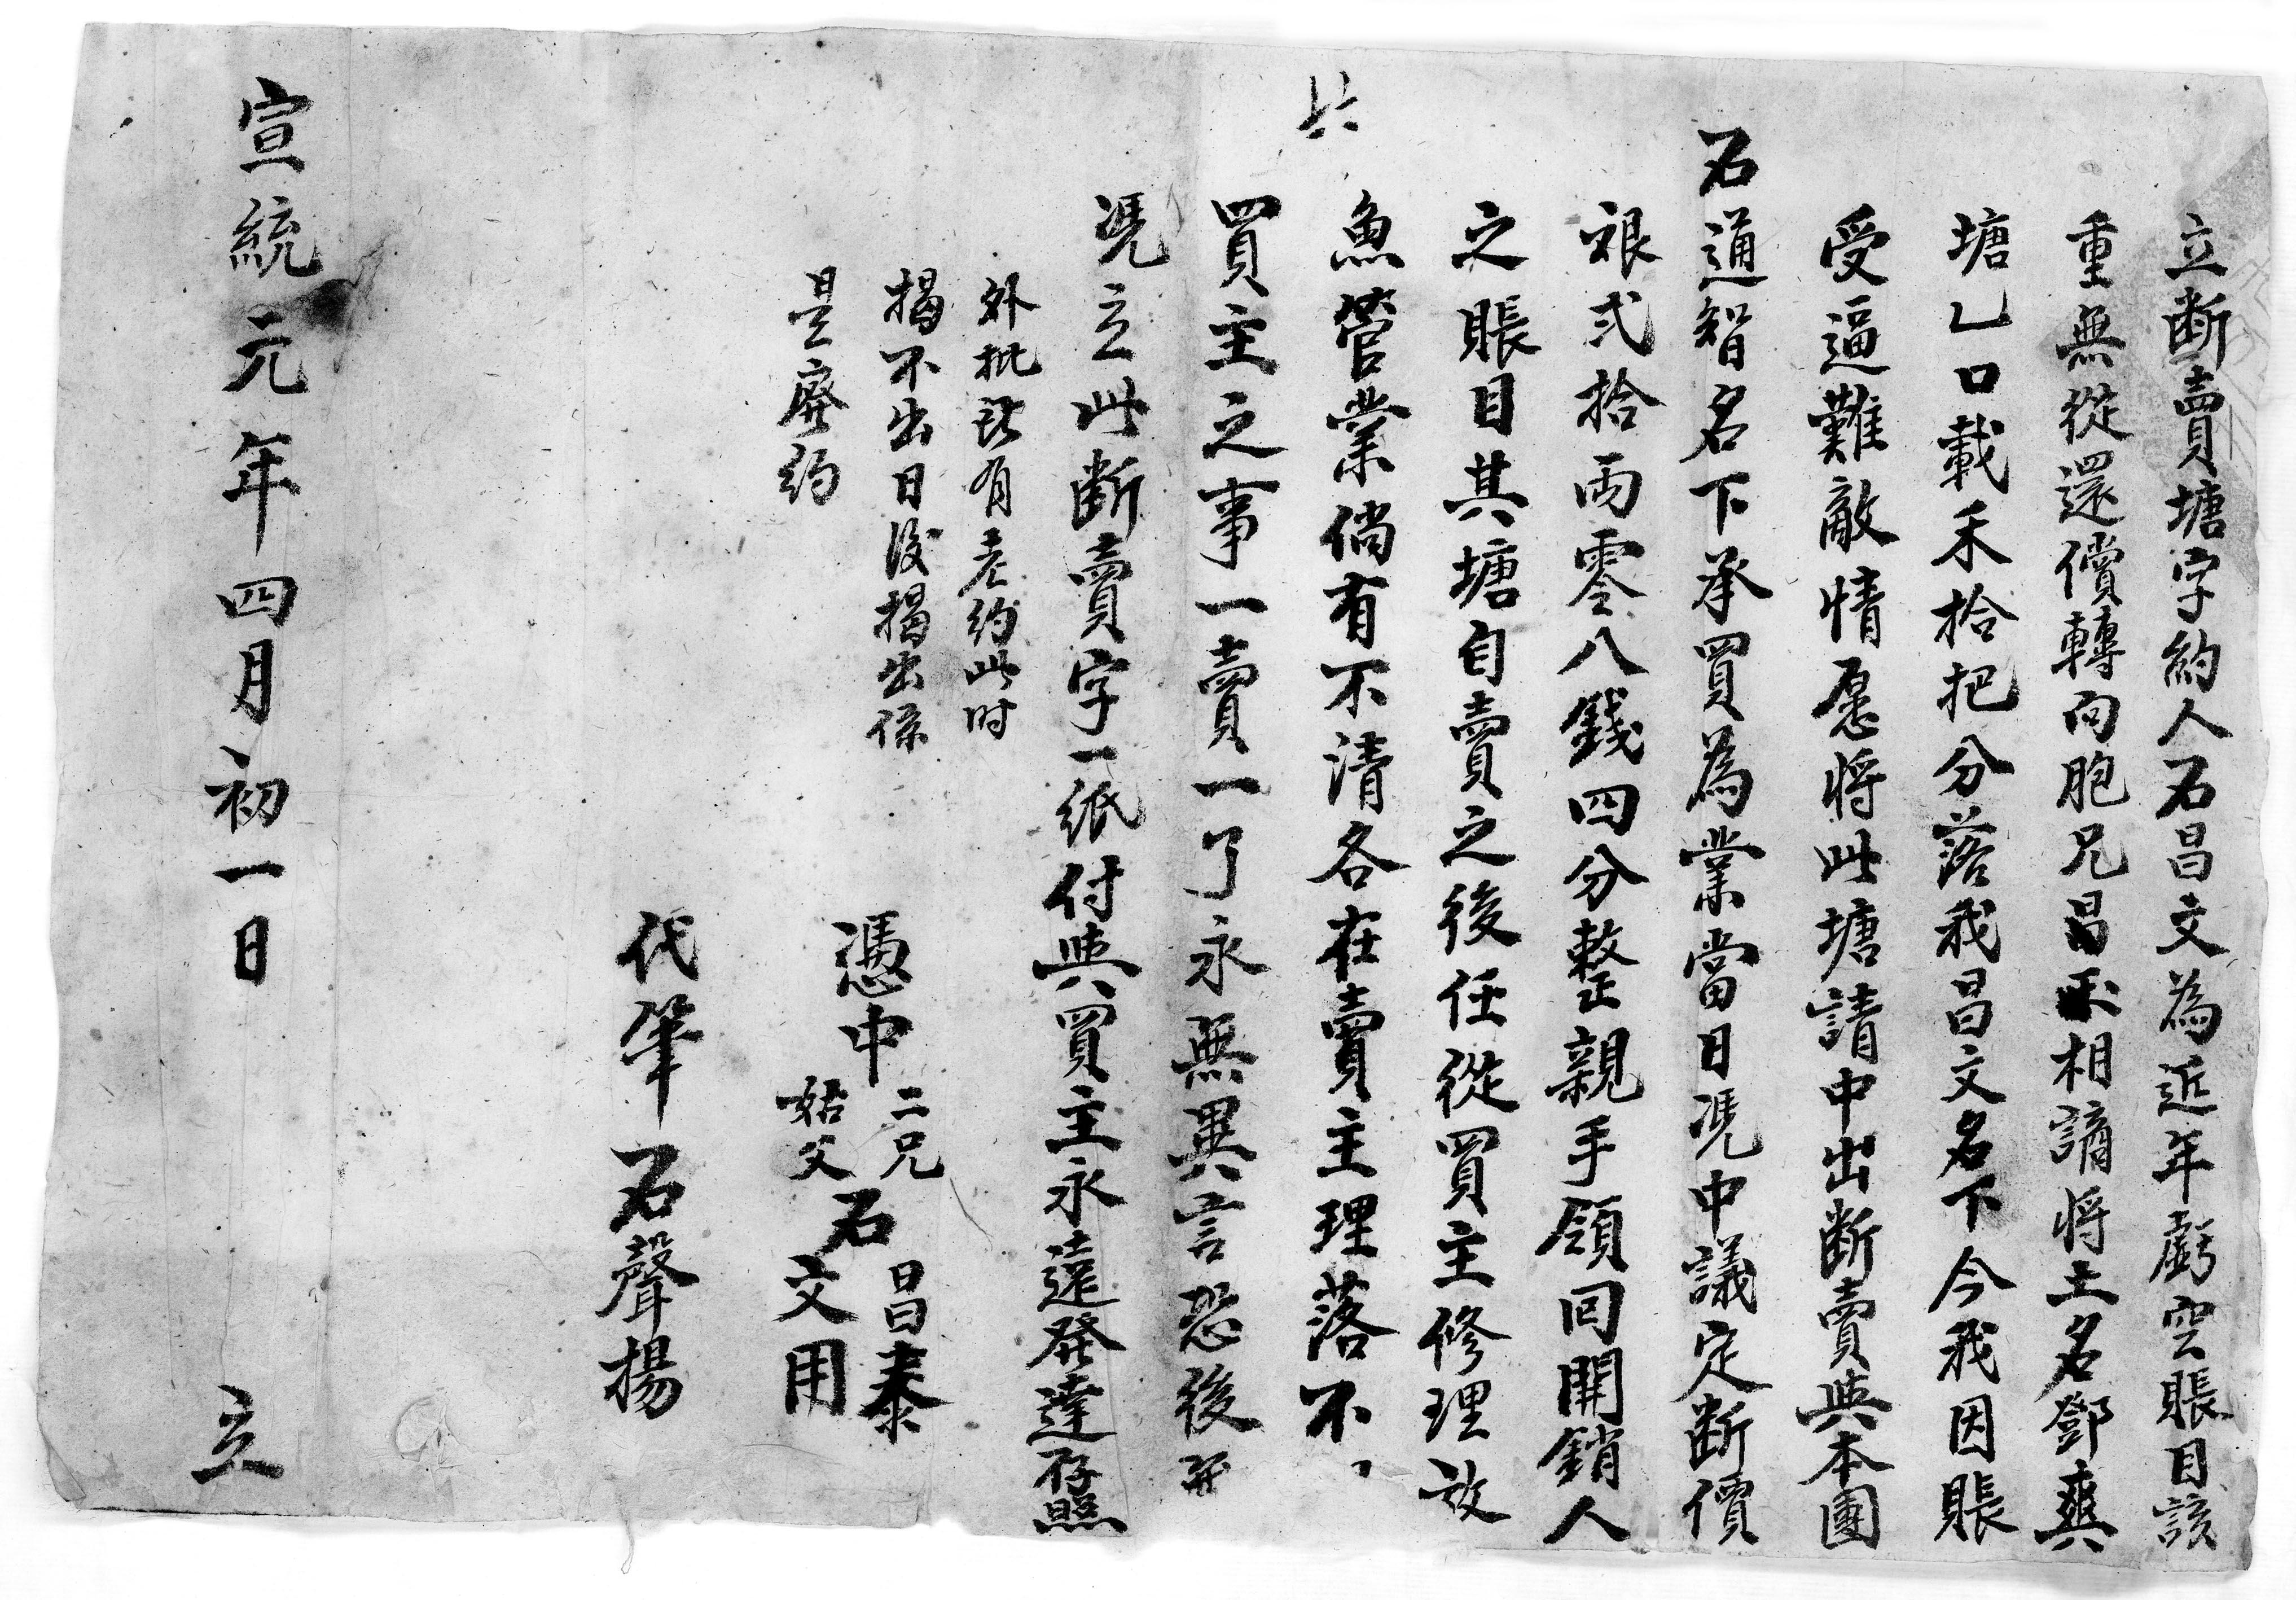 立断賣塘字約人石昌文為近年虧空賬目該
重無從還償轉向胞兄昌玉相謫將土名鄧爽
塘乙口載禾拾把分落我昌文名下今我因賬
受逼難敵情愿將此塘請中出断賣與本團
石通智名下承買為業當日凴中議定断價
艮弍拾兩零八錢四分整親手領回開銷人
之賬目其塘自賣之後任從買主修理放
魚管業倘有不清各在賣主理落不、
共
買主之事一賣一了永無異言恐後無
凴立此断賣字一紙付與買主永遠發達存照
外批該有老約此时
揭不出日後揭出係
是廢約
憑中 二兄 姑父 石 昌泰 文用
代筆 石聲揚
宣統元年四月初一日 立